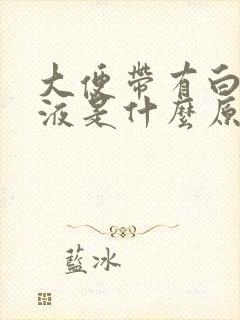 大便帶有白
液是什麼原
藍冰